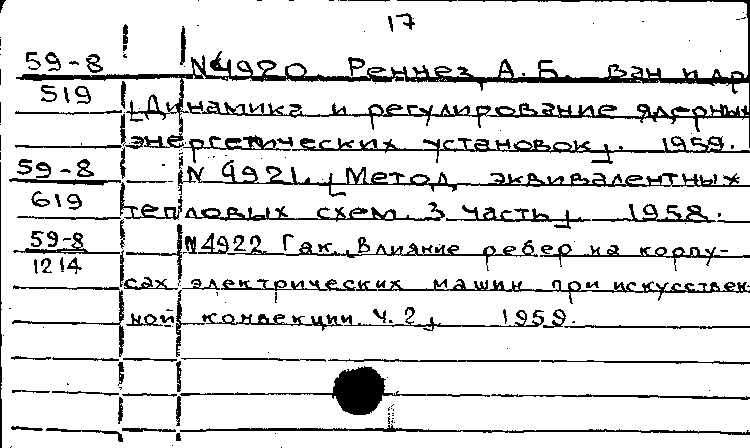 17
59-8 №4920. Реннез, А. Б. ван и др
519 [Динамика и регулирование ядерных
энергетических установок]. 1959.
59-8 № 4921. [Метод эквивалентных
619 тепловых схем. 3 часть]. 1958.
59-8 №4922 Гак. [Влияние ребер на корпу-
1214 сах электрических машин при искусствен
ной конвекции. Ч. 2] 1959.